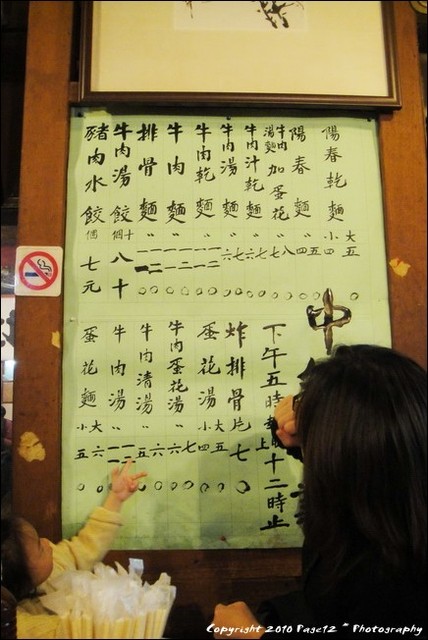 陽春乾麵 小大 四五 〇〇
陽春麵 〃 四五 〇〇
牛肉湯麵加蛋花 七八 〇〇
牛肉汁乾麵 〃 六七 〇〇
牛肉湯麵 〃 六七 〇〇
牛肉乾麵 〃
牛肉麵 〃
排骨麵 〃
牛肉湯餃 十個 八十
豬肉水餃 個 七元
中
下午五時 上十二時止
炸排骨片 七〇
蛋花湯 小大 四五 〇〇
牛肉蛋花湯 〃 六七 〇〇
牛肉清湯 〃 五六 〇〇
牛肉湯 〃
蛋花麵 小大 五六 〇〇
Copyright 2010 Page12 ~ Photography